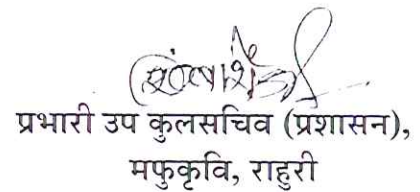 प्रभारी उप कुलसचिव (प्रशासन),
मफुकृवि, राहुरी